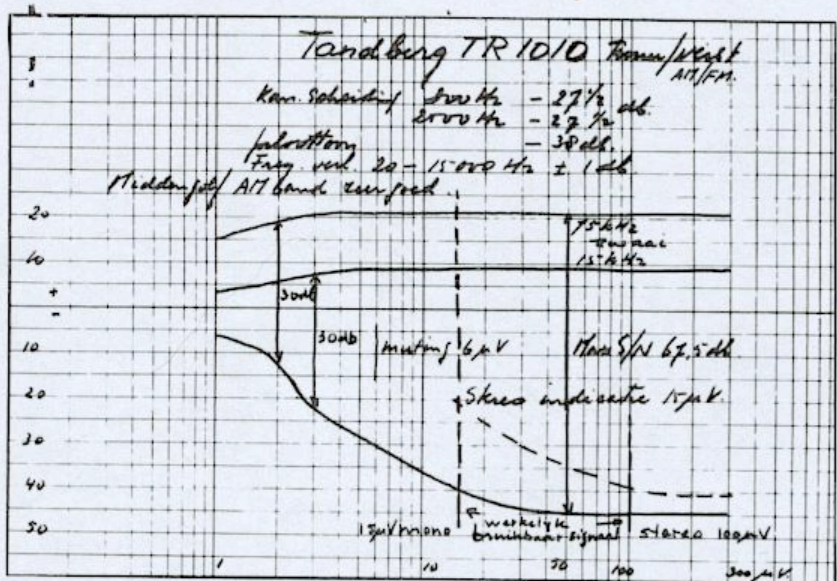 Tandberg TR 1010 Tuner/Verst
AM/FM.
Kan. Scheiding 800 Hz - 27½ db.
2000 Hz - 27½
piloottoon - 38 db.
Freq. verl. 20 - 15000 Hz ± 1 db
Middengolf/AM band zeer goed.
20
75 kHz
zwaai
15 kHz
10
+
-
30db
30db
muting 6 µV
Max S/N 67,5 db
10
20
Stereo indicatie 15µV.
30
40
50
15µV mono
werkelijk
bruikbaar signaal
stereo 100µV.
1
10
50
100
300 µV.